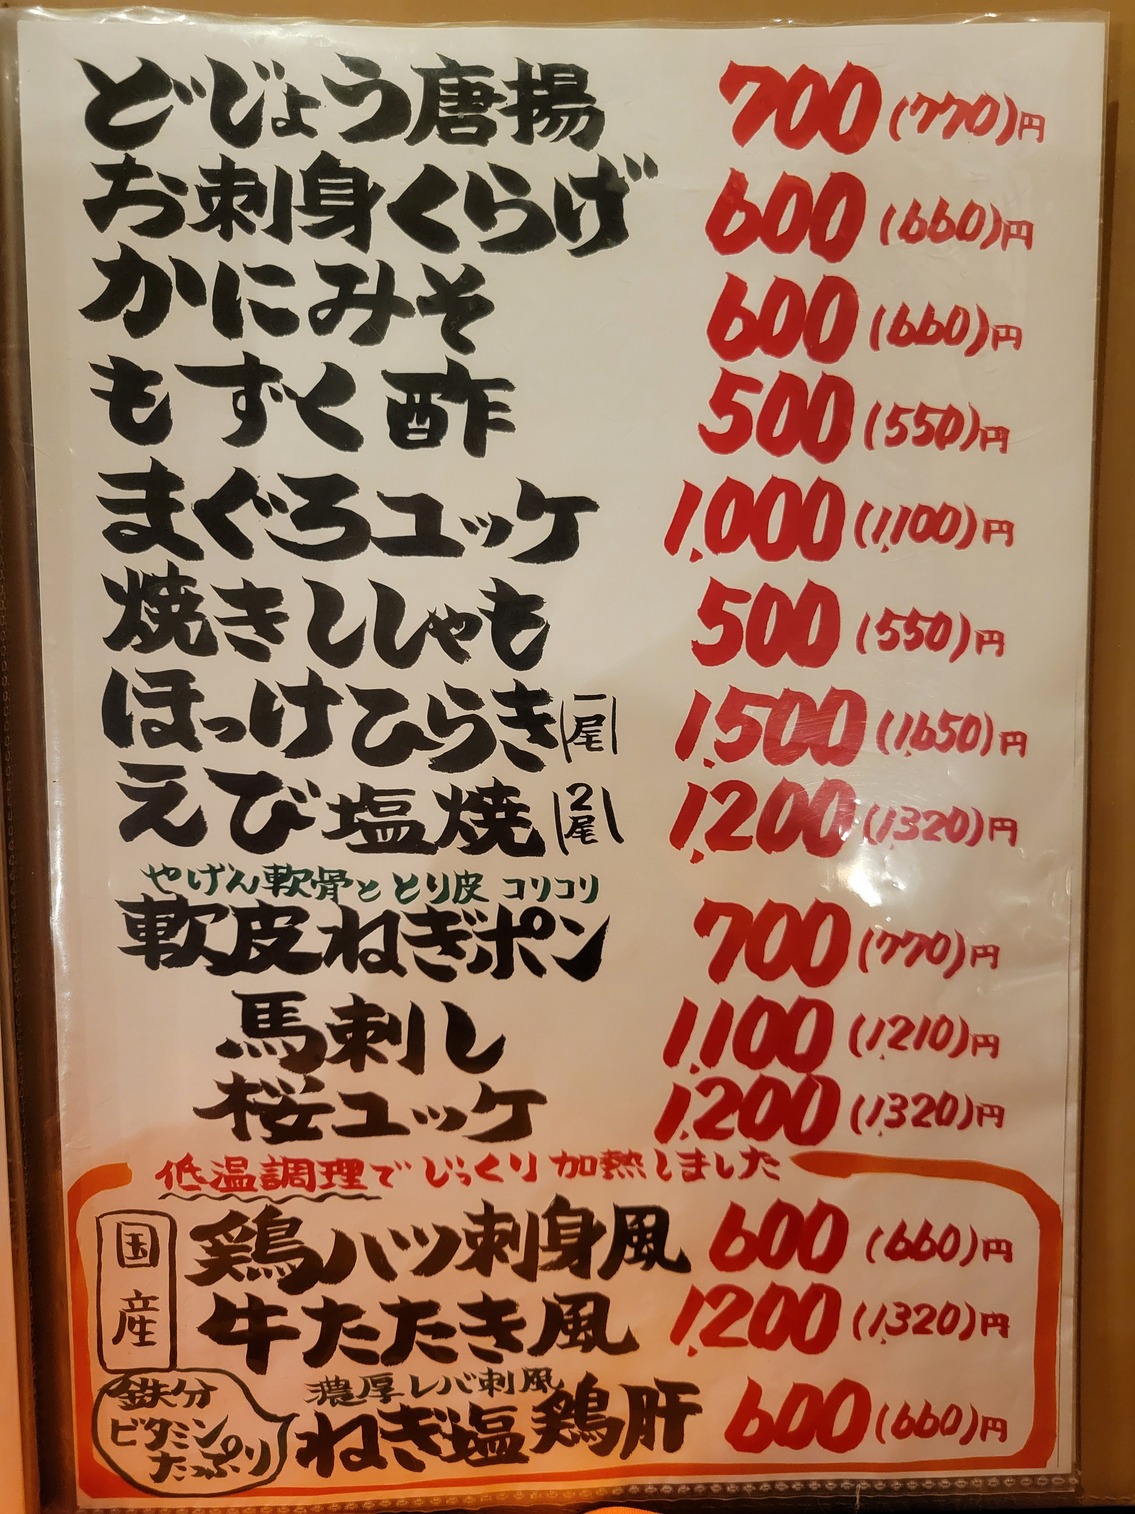 どじょう唐揚 700(770)円
お刺身くらげ 600(660)円
かにみそ 600(660)円
もずく酢 500(550)円
まぐろユッケ 1,000(1,100)円
焼きししゃも 500(550)円
ほっけひらき(一尾) 1,500(1,650)円
えび塩焼(2尾) 1,200(1,320)円
やげん軟骨ととり皮 コリコリ
軟皮ねぎポン 700(770)円
馬刺し 1,100(1,210)円
桜ユッケ 1,200(1,320)円
低温調理でじっくり加熱しました
国産
鶏ハツ刺身風 600(660)円
牛たたき風 1,200(1,320)円
鉄分
ビタミン
たっぷり
濃厚レバ刺風
ねぎ塩鶏肝 600(660)円